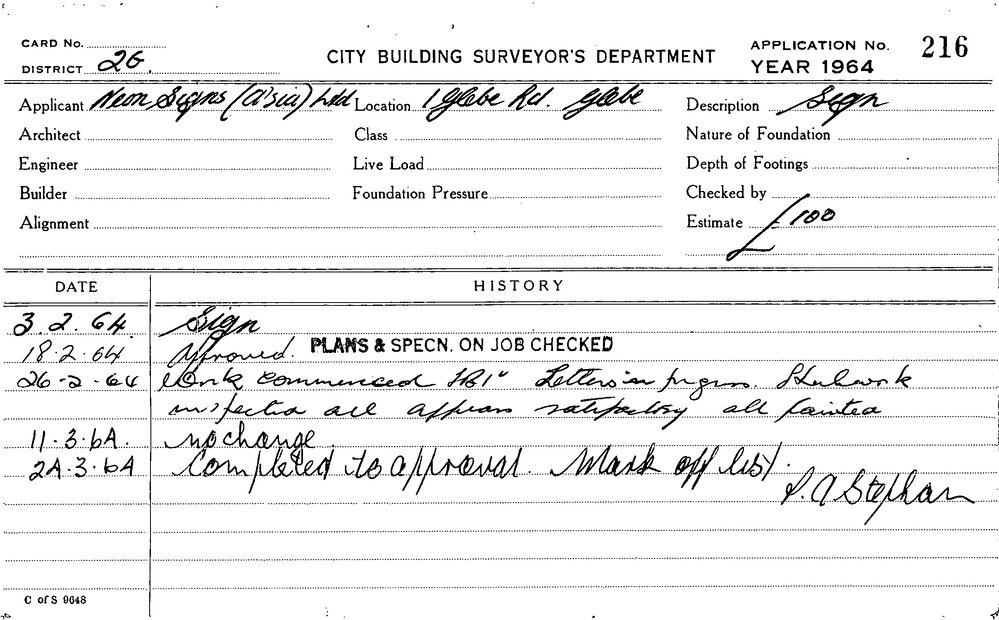 CARD No.
DISTRICT 26.
CITY BUILDING SURVEYOR'S DEPARTMENT
APPLICATION No. 216
YEAR 1964
Applicant Neon Signs (A'sia) Ltd Location 1 Glebe Rd. Glebe Description Sign
Architect Class Nature of Foundation
Engineer Live Load Depth of Footings
Builder Foundation Pressure Checked by
Alignment Estimate £100
DATE HISTORY
3.2.64 Sign
18.2.64 Approved. PLANS & SPECN. ON JOB CHECKED
26-2-64 Work commenced Letters in progress. Steelwork
inspected all appears satisfactory all painted
11.3.64. no change.
24.3.64 Completed to approval. Mark off list.
S. A Stephan
C of S 9648